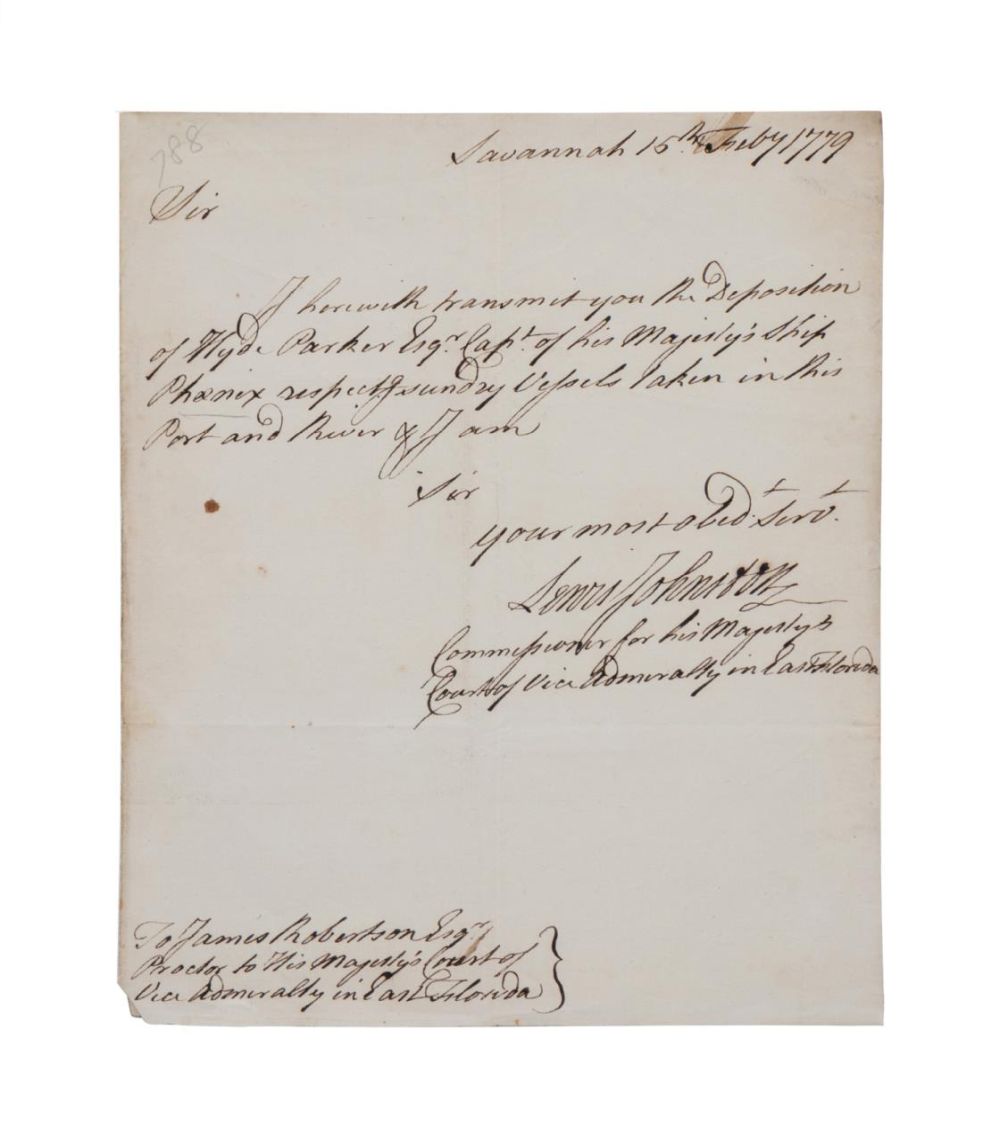 788
Savannah 16th Feby 1779
Sir
I herewith transmit you the Deposition
of Hyde Parker Esqr. Capt. of his Majesty's Ship
Phœnix respectg sundry Vessels taken in this
Port and River & I am
Sir
your most obedt. Servt.
Lewis Johnston
Commissioner for his Majesty's
Court of Vice Admiralty in East Florida
To James Robertson Esqr
Proctor to His Majesty's Court of
Vice Admiralty in East Florida